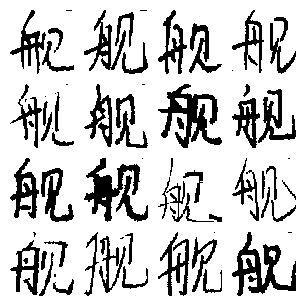 舰舰舰舰
舰舰舰舰
舰舰舰舰
舰舰舰舰